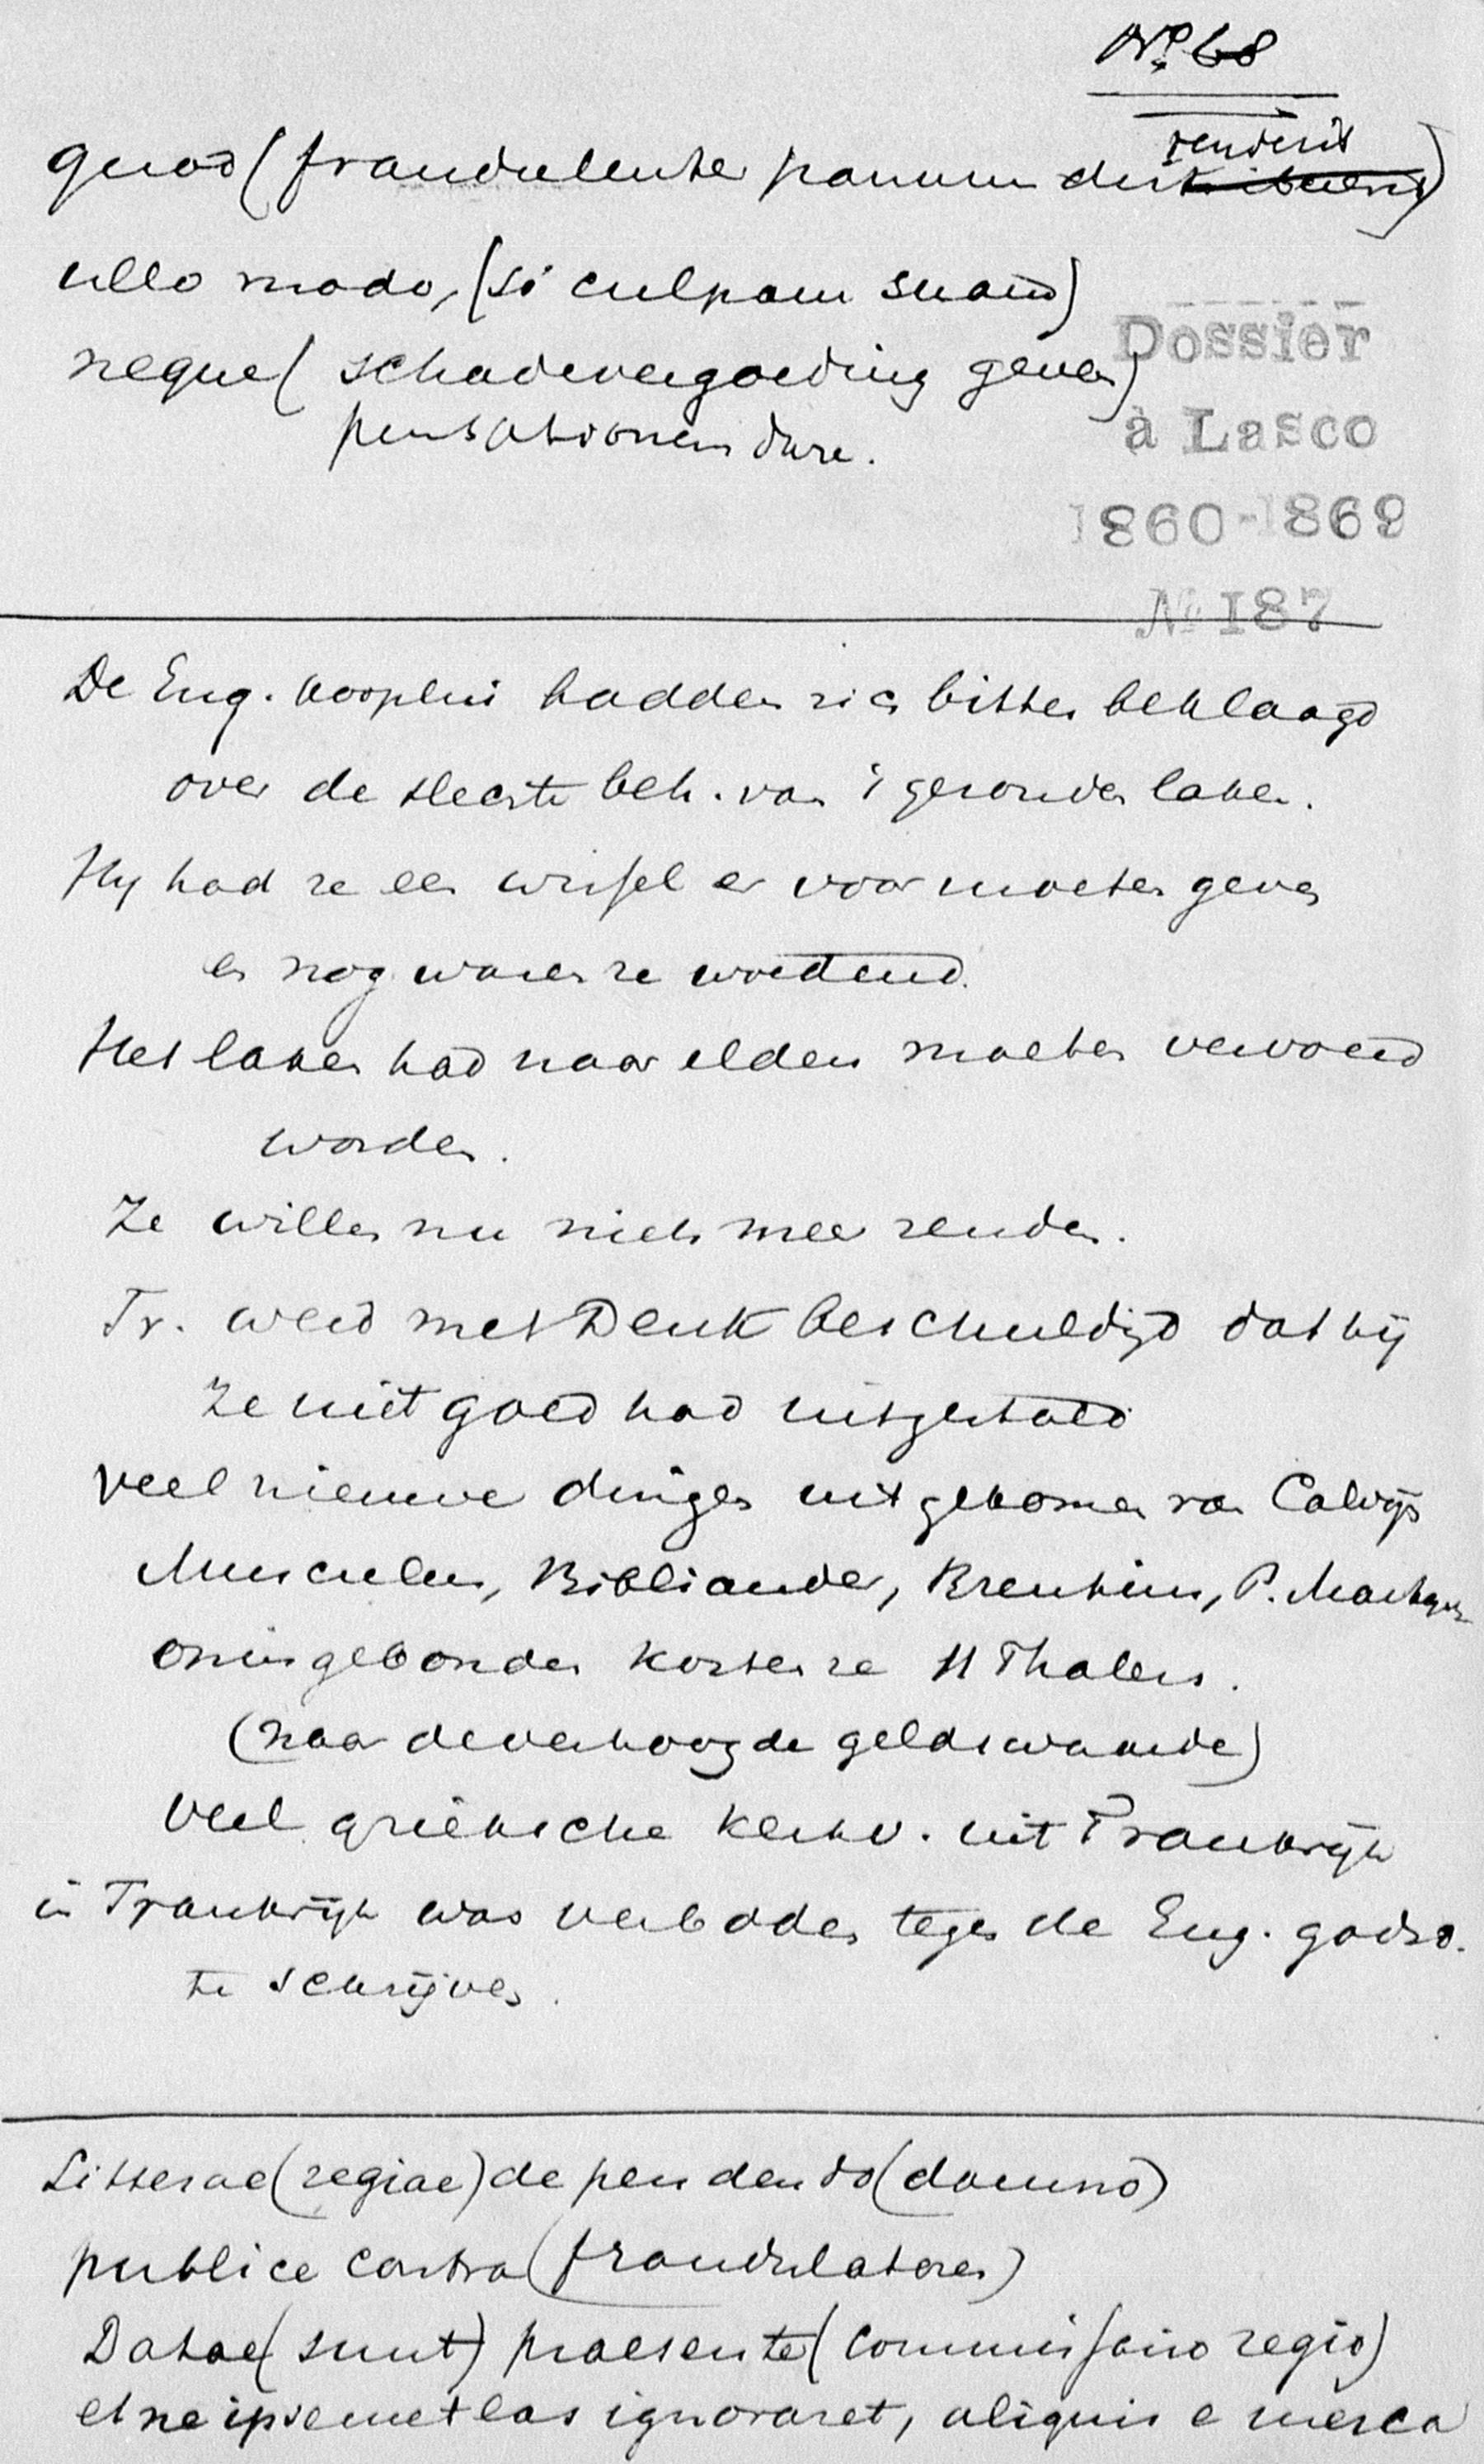 No. 68
venderit
quod (fraudulenter pannum distribuerit)
ullo modo, (si culpam suam)
neque ( schadevergoeding geven)
pensationem dare.
Dossier
à Lasco
1860-1869
No 187
De Eng. kooplui hadden zich bitter beklaagd
over de slechte beh. van 't gezonden laken.
Hy had ze een wissel er voor moeten geven
en nog waren ze woedend.
Het laken had naar elders moeten vervoerd
worden.
Ze willen nu niets meer zenden.
Tr. werd met Denk beschuldigd dat hij
ze niet goed had uitgestald
veel nieuwe dingen uitgekomen van Calvijn
Musculus, Bibliander, Brentius, P. Martyr
oningebonden kosten ze 11 Thalers.
(naar de verhoogde geldswaarde)
veel grieksche kerkv. uit Frankrijk
in Frankrijk was verboden tegen de Eng. godsd.
te schrijven.
Litterae (regiae) de pendendo (damno)
publice contra (fraudulatores)
Datae (sunt) praesente (commissario regio)
et ne ipsemet eas ignoraret, aliquis e merca